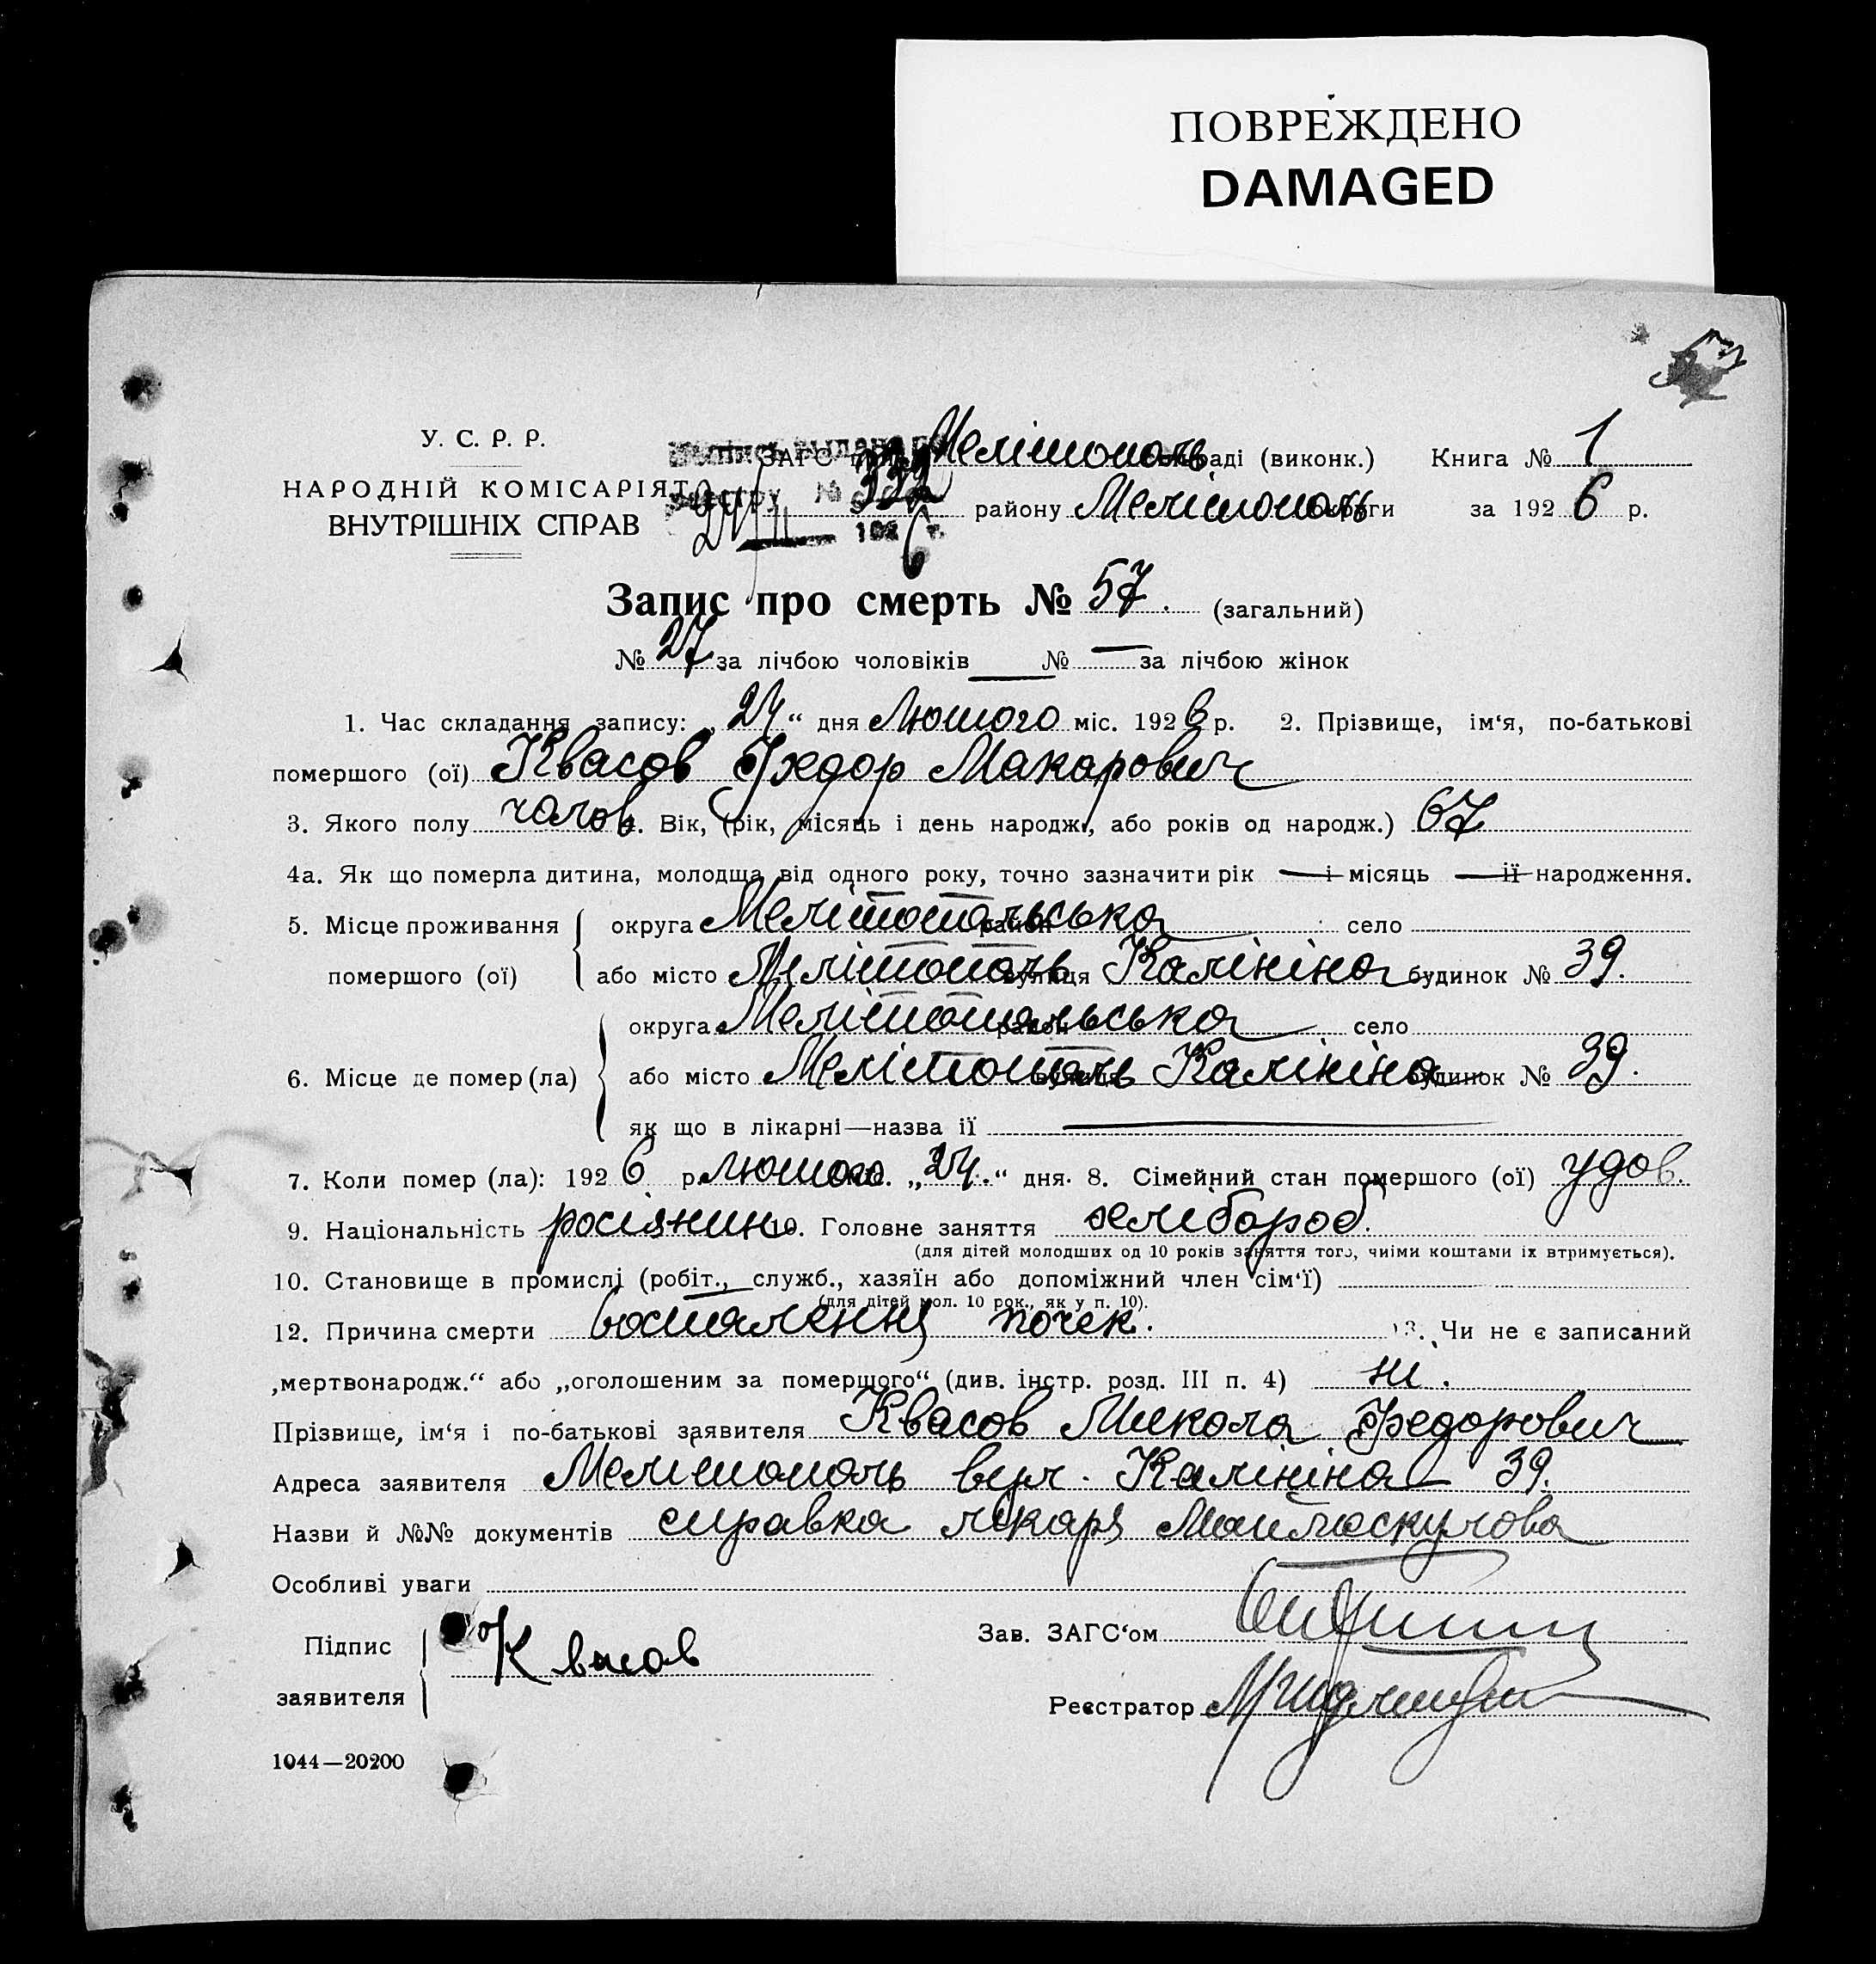 ПОВРЕЖДЕНО
DAMAGED
У. С. Р. Р.
НАРОДНІЙ КОМІСАРІЯТ
ВНУТРІШНІХ СПРАВ
ЗАГС при Мелітополь раді (виконк.) Книга № 1
реєстру № 332 району Мелітополь округи за 1926 р.
24/II 1926 г.
Запис про смерть № 57. (загальний)
№ 27 за лічбою чоловіків № — за лічбою жінок
1. Час складання запису: „24“ дня Лютого міс. 1926 р. 2. Прізвище, ім‘я, по-батькові
помершого (ої) Квасов Федор Макарович
3. Якого полу чолов. 4. Вік, (рік, місяць і день народж., або років од народж.) 67
4а. Як що померла дитина, молодща від одного року, точно зазначити рік — і місяць — її народження.
5. Місце проживання помершого (ої)
округа Мелітопольська район село
або місто Мелітополь вулиця Калініна будинок № 39.
6. Місце де помер (ла)
округа Мелітопольська район село
або місто Мелітополь вулиця Калініна будинок № 39.
як що в лікарні—назва її —
7. Коли помер (ла): 1926 р. лютого міс. „24.“ дня. 8. Сімейний стан помершого (ої) удов.
9. Національність росіянин 10. Головне заняття хлібороб.
(для дітей молодших од 10 років заняття того, чиїми коштами їх втримується).
10. Становище в промислі (робіт., служб., хазяїн або допоміжний член сім‘ї)
(для дітей мол. 10 рок., як у п. 10).
12. Причина смерти воспалення почек. 13. Чи не є записаний
„мертвонародж.“ або „оголошеним за померщого“ (див. інстр. розд. III п. 4) ні.
Прізвище, ім‘я і по-батькові заявителя Квасов Микола Федорович
Адреса заявителя Мелітополь вул. Калініна 39.
Назви й №№ документів справка лікаря
Особливі уваги
Підпис заявителя Квасов
Зав. ЗАГС‘ом
Реєстратор
1044—20200